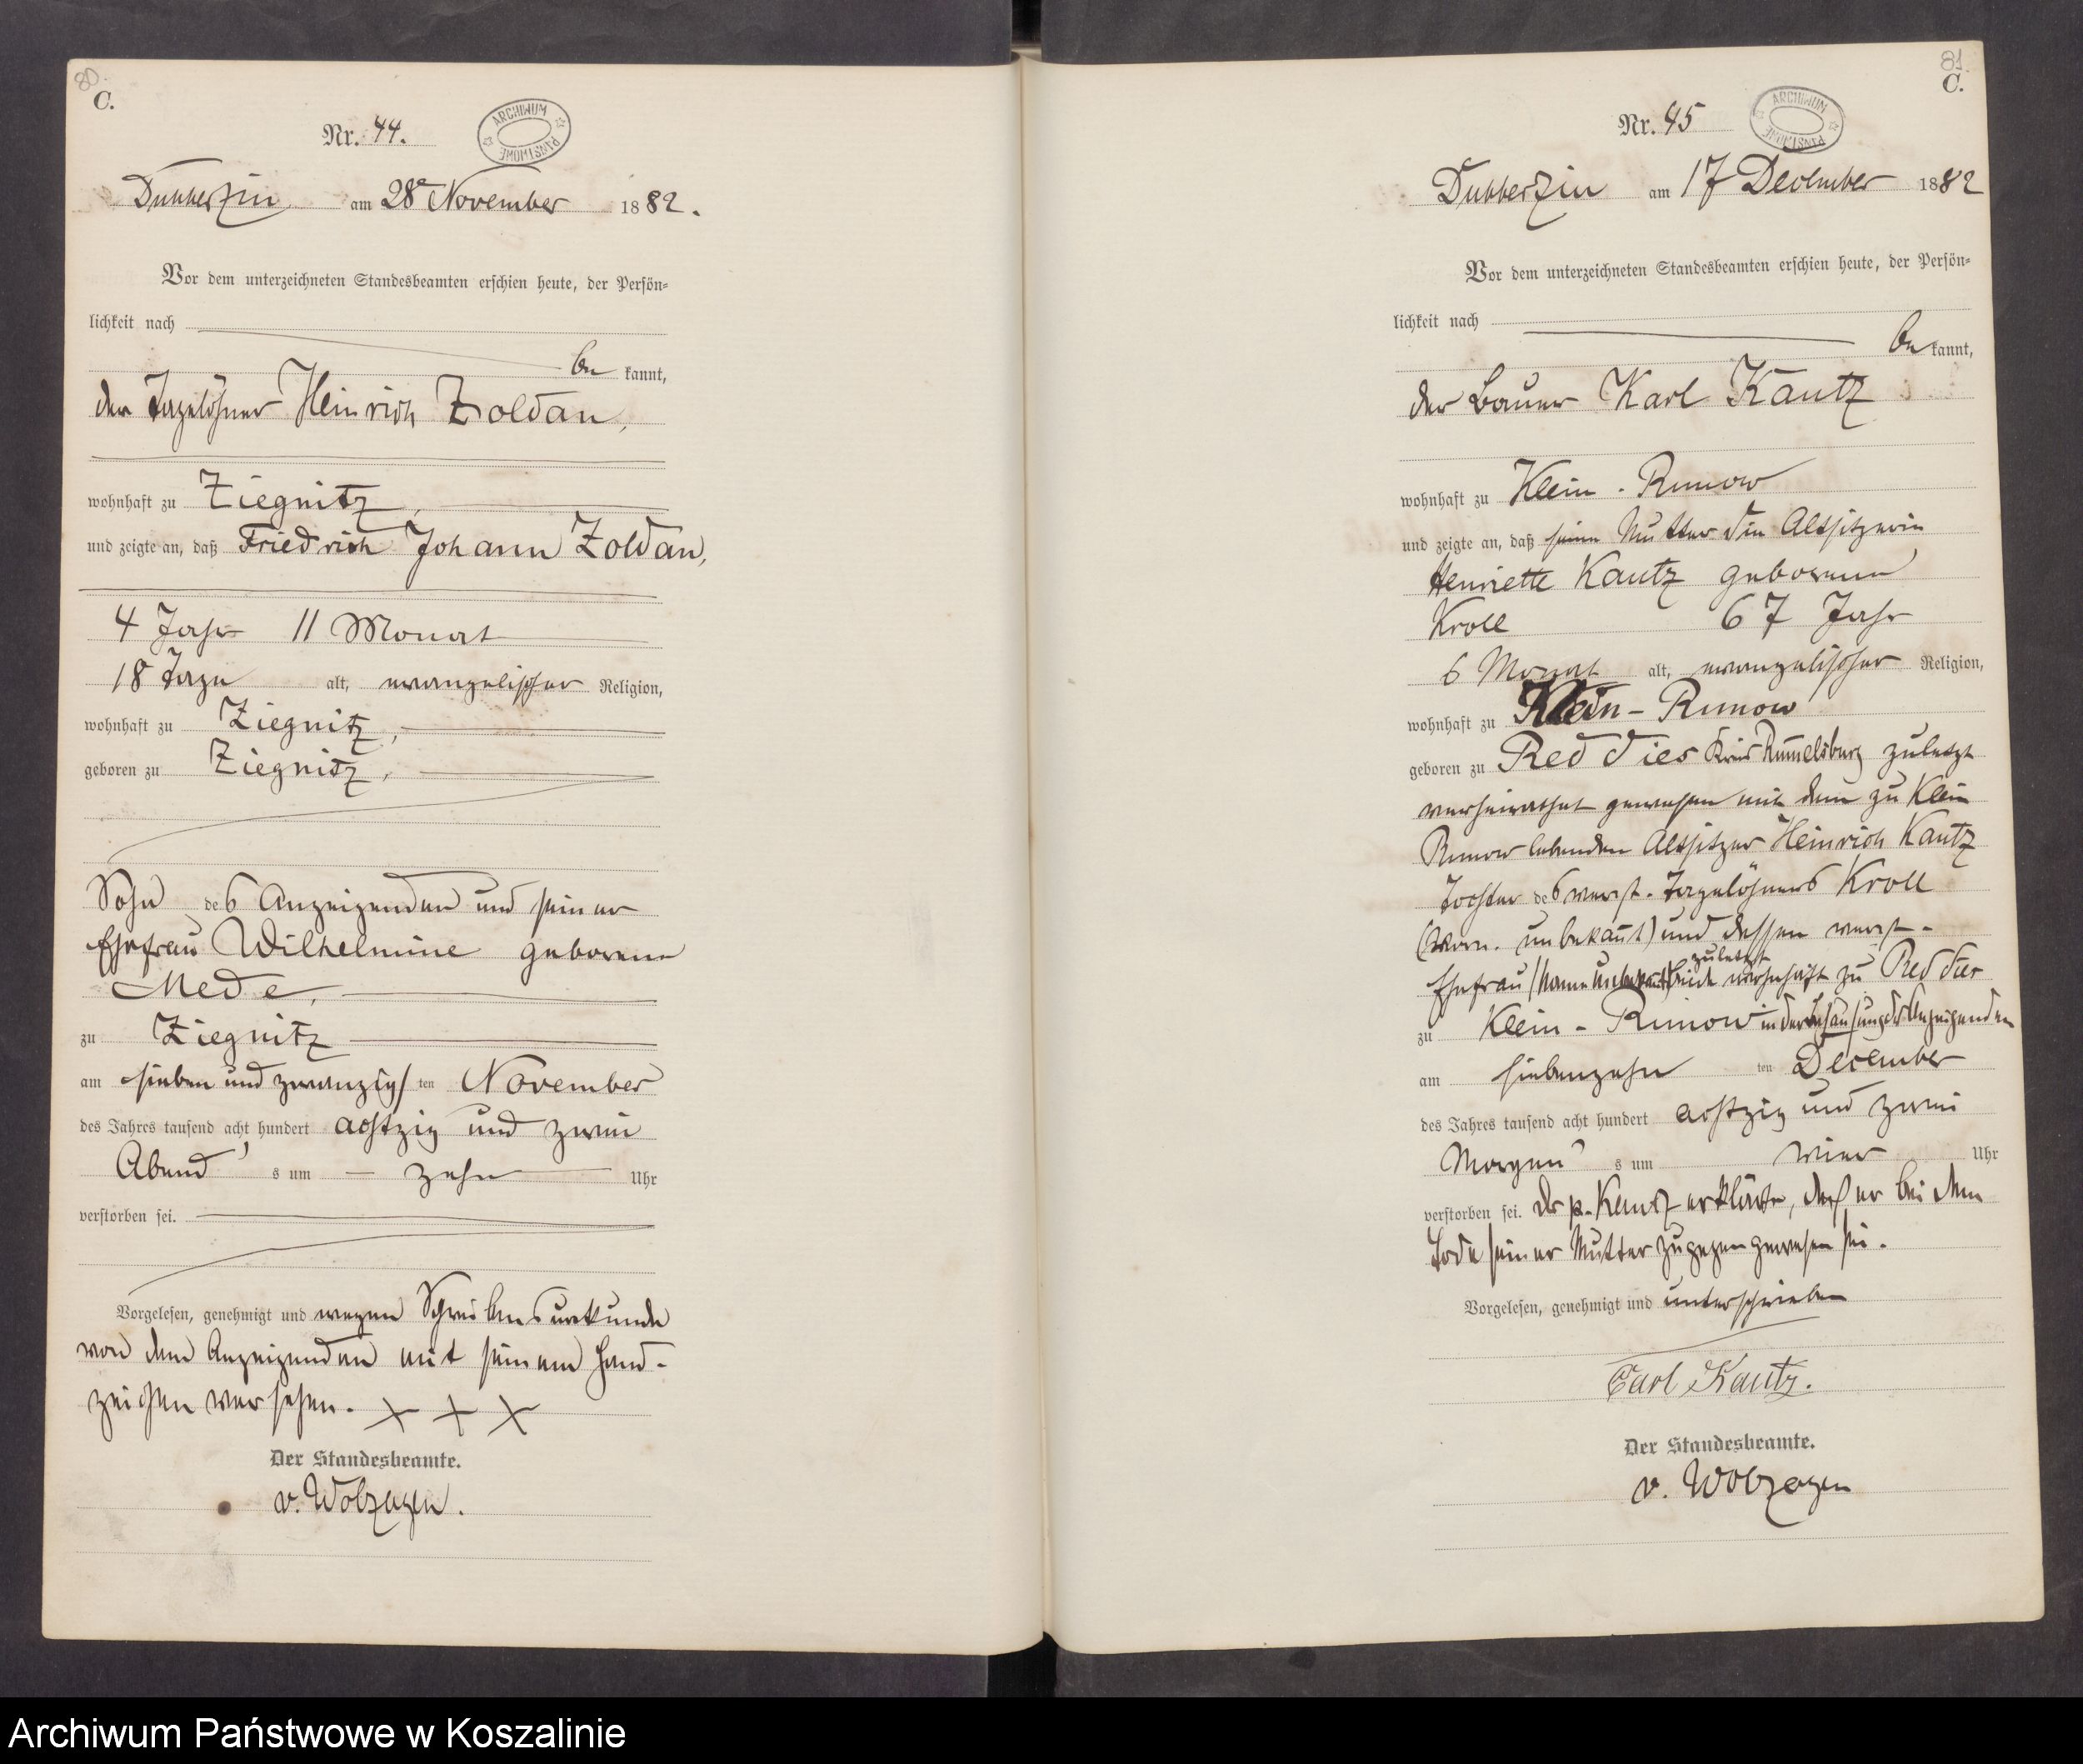 80.
C.
Nr. 44.
ARCHIWUM PAŃSTWOWE
Dubberzin am 28ᵗ November 1882.
Vor dem unterzeichneten Standesbeamten erschien heute, der Persön-
lichkeit nach
be kannt,
der Tagelöhner Heinrich Zoldan,
wohnhaft zu Ziegnitz,
und zeigte an, daß Friedrich Johann Zoldan,
4 Jahr 11 Monat
18 Tage alt, evangelischer Religion,
wohnhaft zu Ziegnitz,
geboren zu Ziegnitz,
Sohn des Anzeigenden und seiner
Ehefrau Wilhelmine geborene
Mede,
zu Ziegnitz
am sieben und zwanzigs ten November
des Jahres tausend acht hundert achtzig und zwei
Abend s um zehn Uhr
verstorben sei.
Vorgelesen, genehmigt und wegen Schreibensunkunde
von dem Anzeigenden mit seinem Hand-
zeichen versehen. + + +
Der Standesbeamte.
v. Wolzogen.
81.
C.
Nr. 45
ARCHIWUM PAŃSTWOWE
Dubberzin am 17 December 1882
Vor dem unterzeichneten Standesbeamten erschien heute, der Persön-
lichkeit nach
be kannt,
der Bauer Karl Kautz
wohnhaft zu Klein-Runow
und zeigte an, daß seine Mutter die Altsitzerin
Henriette Kautz geborene
Kroll 67 Jahr
6 Monat alt, evangelischer Religion,
wohnhaft zu Klein-Runow
geboren zu Reddies Kreis Rummelsburg zuletzt
verheirathet gewesen mit dem zu Klein
Runow lebenden Altsitzer Heinrich Kautz
Tochter des verst. Tagelöhners Kroll
(Vorn. unbekannt) und dessen verst.
Ehefrau (Name unbekannt) beide zuletzt wohnhaft zu Reddies
zu Klein-Runow in der Behausung des Anzeigenden
am siebenzehn ten December
des Jahres tausend acht hundert achtzig und zwei
Morgen s um vier Uhr
verstorben sei. Der p. Kautz erklärte, daß er bei dem
Tode seiner Mutter zugegen gewesen sei.
Vorgelesen, genehmigt und unterschrieben
Carl Kautz.
Der Standesbeamte.
v. Wolzogen
Archiwum Państwowe w Koszalinie